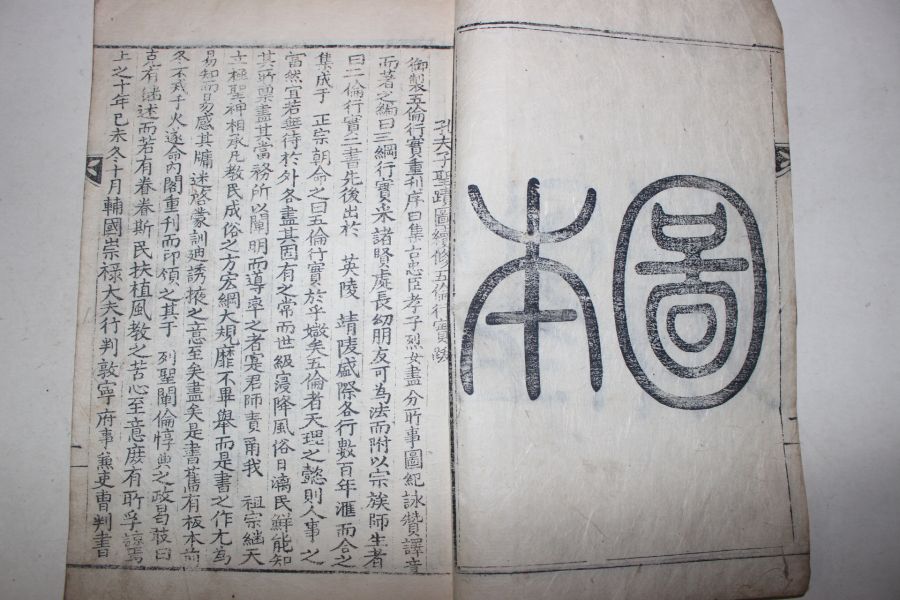 圖本
孔夫子聖蹟圖續修五倫行實錄
御製五倫行實重刊序曰集古忠臣孝子烈女盡分所事圖紀詠贊譯音
而著之編曰三綱行實采諸賢處長幼朋友可為法而附以宗族師生者
曰二倫行實二書先後出於 英陵 靖陵盛際各行數百年滙而合之
集成于 正宗朝命之曰五倫行實於乎媺矣五倫者天理之懿則人事之
當然宜若無待於外各盡其固有之常而世級寢降風俗日漓民鮮能知
其所禀盡其當務所以闡明而導率之者寔君師責我 祖宗繼天
立極聖神相承凡教民成俗之方宏綱大規靡不畢舉而是書之作尤為
易知而易感其牖迷啓蒙訓廸誘掖之意至矣盡矣是書舊有板本前
冬不戒于火遂命內閣重刊而印頒之其于 列聖闡倫惇典之政曷敢曰
克有繼述而若有眷眷斯民扶植風教之苦心至意庶有所孚諒焉
上之十年己未冬十月輔國崇祿大夫行判敦寧府事兼吏曹判書